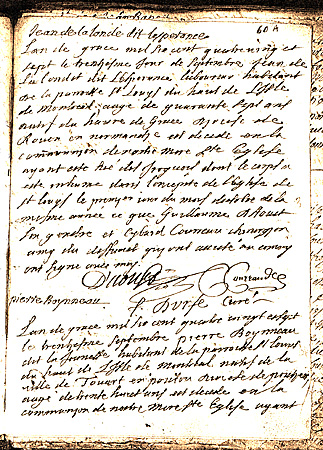 60 A
Jean de la londe dit lesperance
L'an de grace mil six cent quatre vingt et
sept le trentiesme jour de septembre Jean de
la londe dit l'Esperance laboureur habitant
de la paroisse St Louys du haut de l'Isle
de Montreal agé de quarante sept ans
natif du havre de Grace Diocese de
Rouen en normandie est decedé en la
communion de notre Mere Ste Eglise
ayant esté tué des Iroquois dont le corps a
esté inhumé dans l'enceinte de l'Eglise de
st Louys le premier jour du mois d'octobre de la
mesme année ce que Guillaume
son gendre et Cybard Couraud chirurgien
amy du deffunct qui ont assisté au convoy
ont signé avec moy
Couraud
pierre Bonneau
P. Remy Curé
L'an de grace mil six cent quatre vingt et sept
le trentiesme septembre Pierre Bonneau
dit la Jeunesse habitant de la paroisse St Louis
du haut de l'Isle de Montreal natif de la
ville de Touars en poictou diocese de poictiers
agé de trente huit ans est decedé en la
communion de notre Mere Ste Eglise ayant